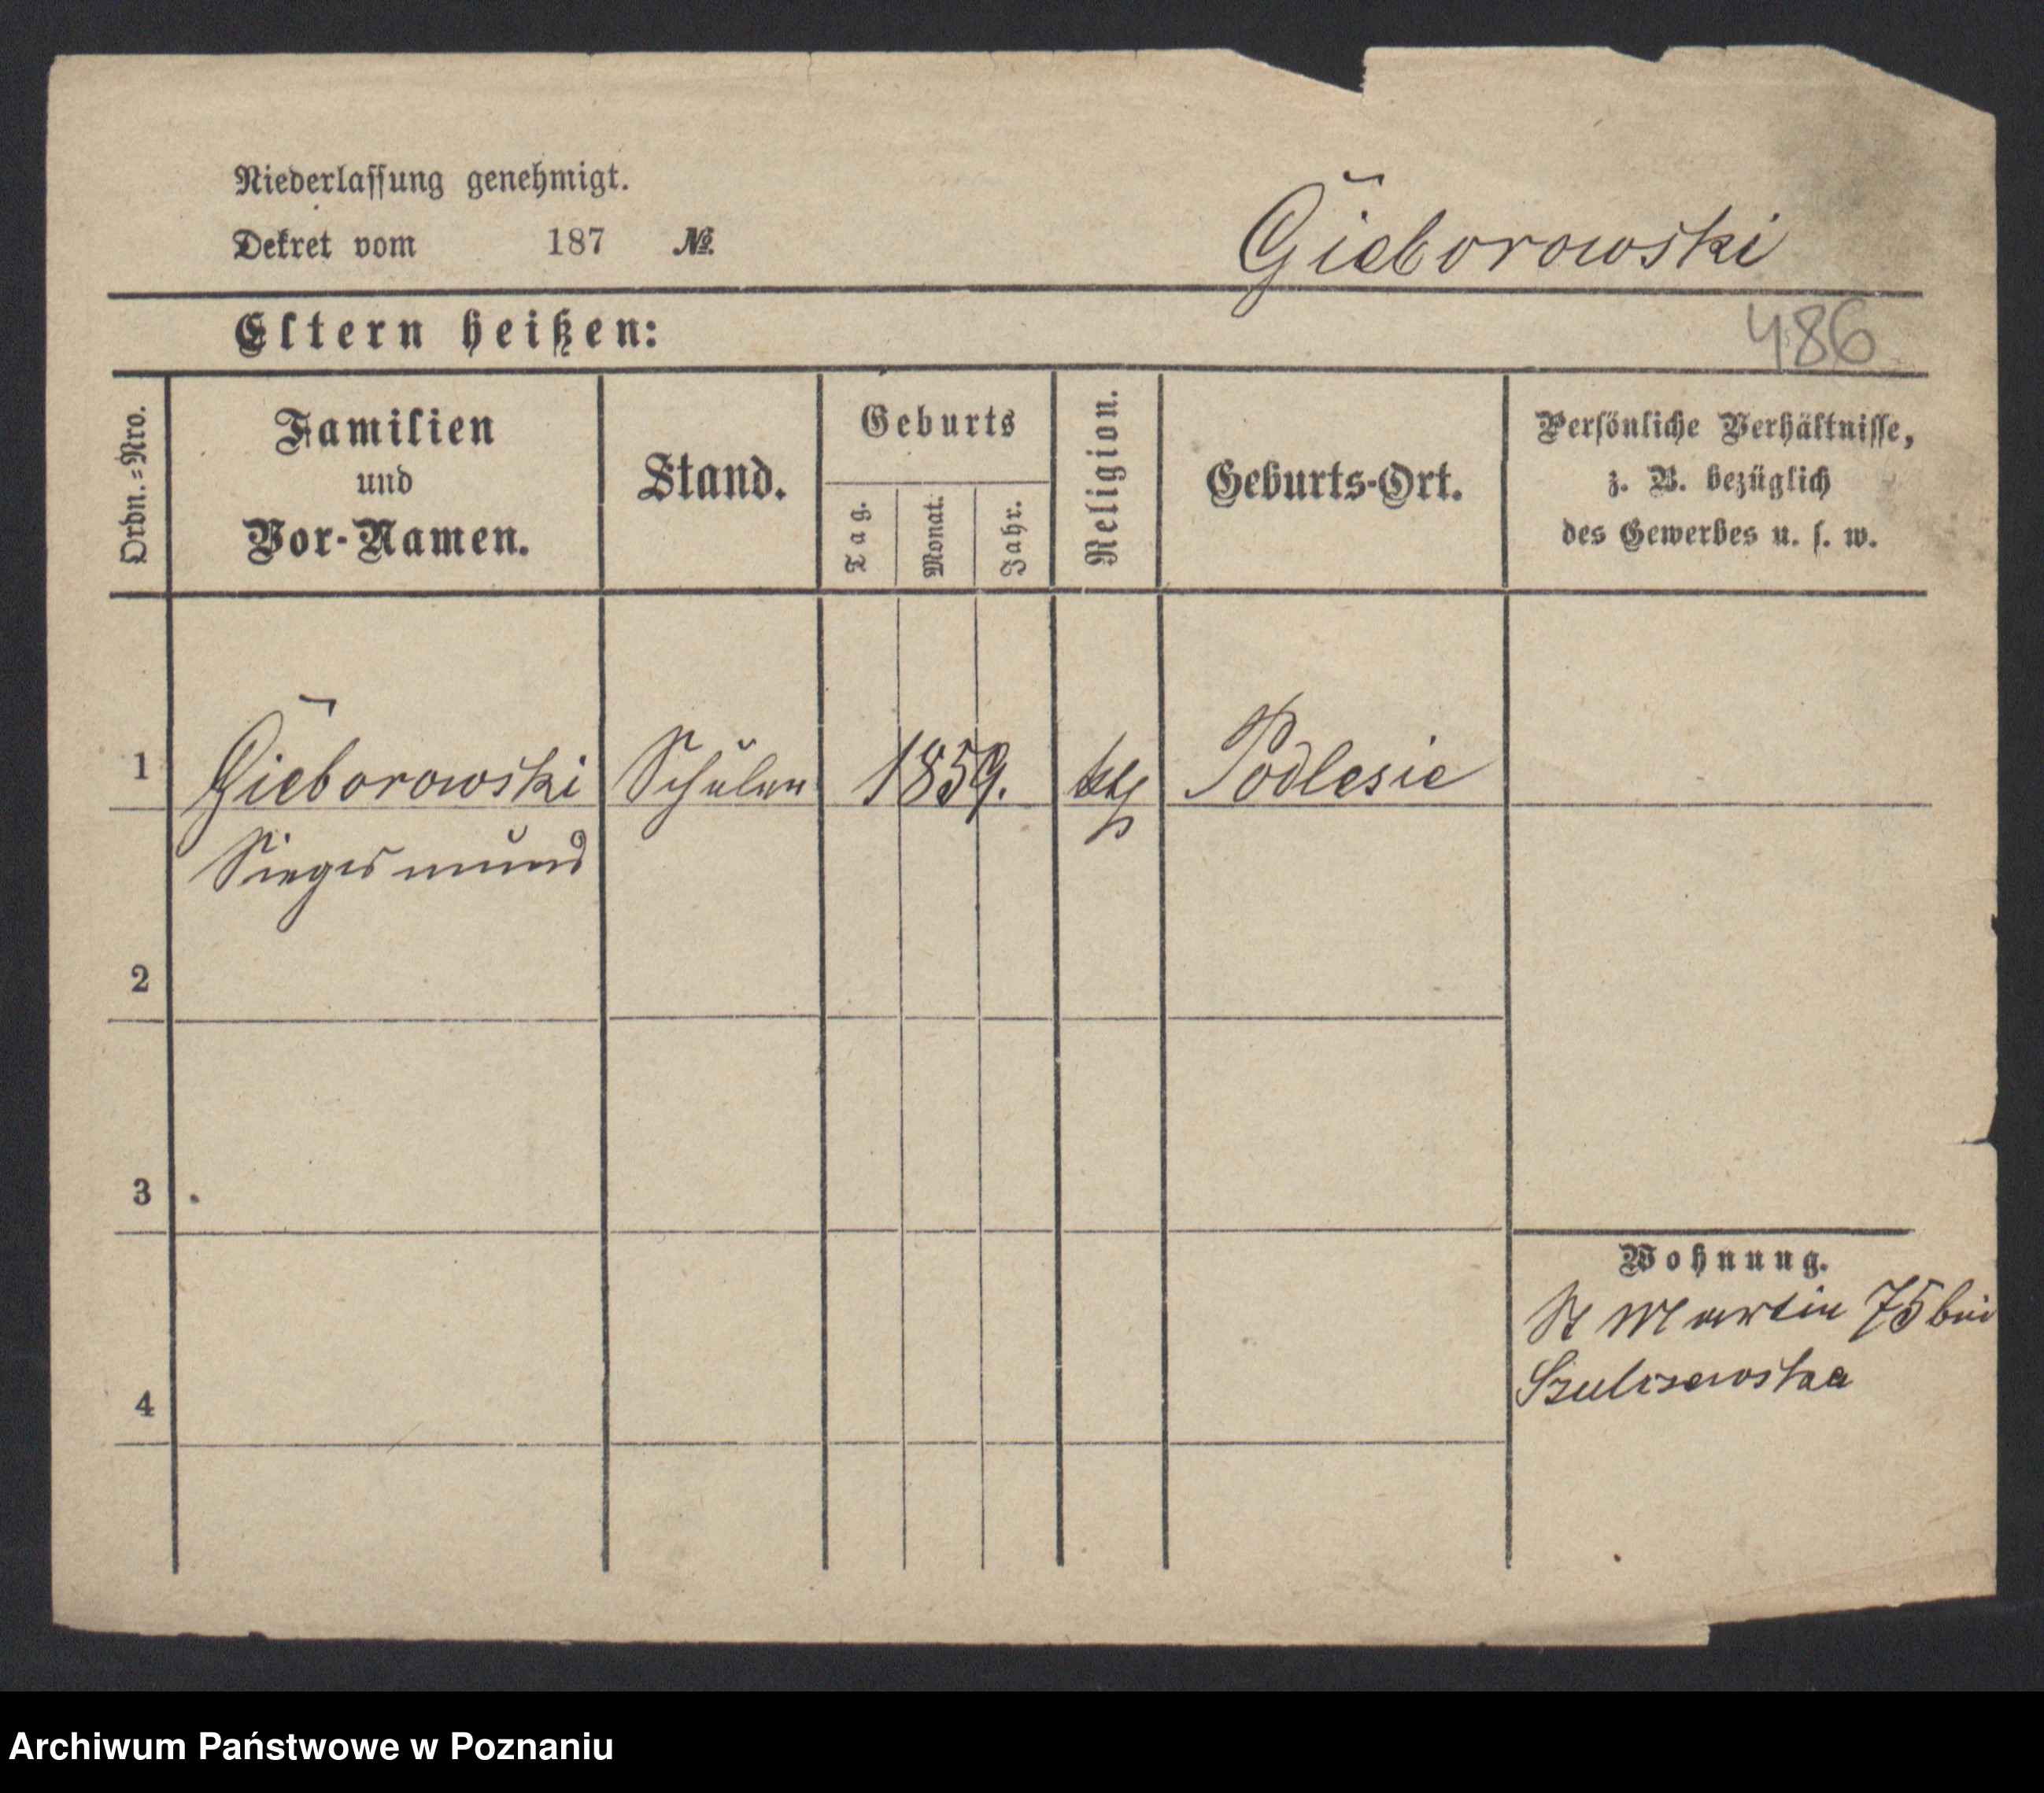 Niederlassung genehmigt.
Dekret vom 187 №
Gieborowski
Eltern heißen:
486
Ordn.=Nro.
Familien
und
Vor-Namen.
Stand.
Geburts
Tag.
Monat.
Jahr.
Religion.
Geburts-Ort.
Persönliche Verhältnisse,
z. B. bezüglich
des Gewerbes u. s. w.
1 Gieborowski Schüler 1859. kth Podlesie
Siegismund
2
3
4
Wohnung.
St Martin 75 bei
Szulczewska
Archiwum Państwowe w Poznaniu